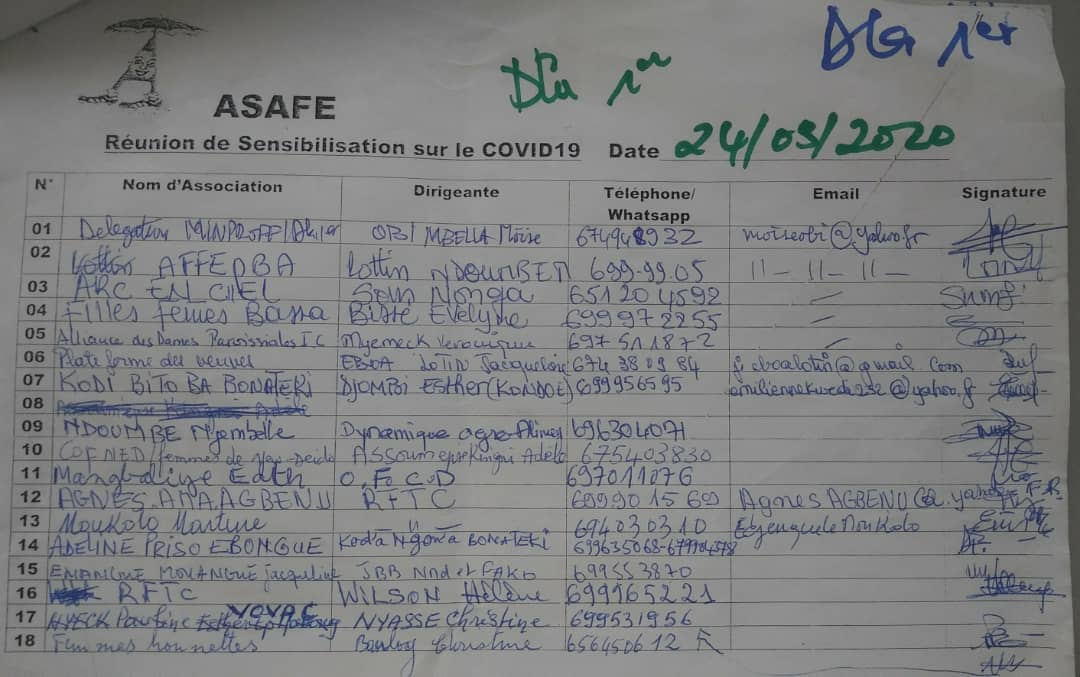 DLa 1er
DLa 1er
ASAFE
Réunion de Sensibilisation sur le COVID19 Date 24/03/2020
N° Nom d'Association Dirigeante Téléphone/ Whatsapp Email Signature
01 Delegation MINPROFF/Dla 1er OBI MBELLA Moïse 674948932 moiseobi@yahoo.fr
02 Lottin AFFERBA Lottin NDOUMBE 699-99.05 11- 11- 11-
03 ARC EN CIEL Nonga 651204592
04 Filles femes Bassa Evelyne 699972255
05 Alliance des Dames Paroissiales I.C Myemeck Veronique 697511872
06 Plate forme des veuves EBOA LOTIN Jacqueline 674380984 j.eboalotin@gmail.com
07 KODI BITO BA BONATEKI DJOMBI Esther (KONDOE) 699956595 emiliennekwedi232@yahoo.fr
08
09 NDOUMBE Mpmbelle Dynamique agro 696304071
10 COFNED femmes de Deido Adele 675403830
11 Edith O.Fo C.D 697011076
12 AGNES.AMA.AGBENU RFTC 699901569 Agnes AGBENU
13 Moukolo Martine " 694030310 Moukolo
14 ADELINE PRISO EBONGUE Kod'a Ngom'a BONATEKI 699635068-
15 EMANGUE MOUANGUE Jacqueline JBB Nnd et FAKO 699553870
16 RFTC WILSON Hélène 699965221
17 NYECK VOVAC NYASSE Christine 699531956
18 Femmes honnettes Christine 656450612